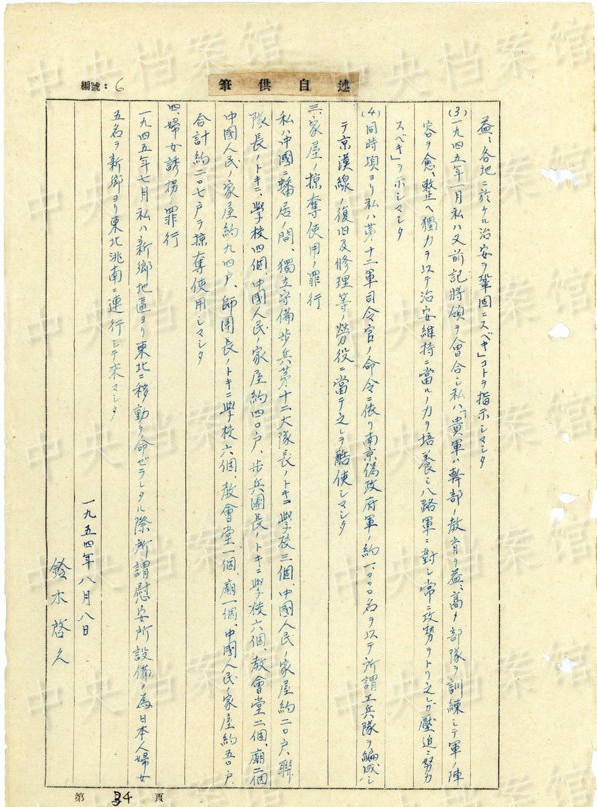 編號：6
述自供筆
益〻各地ニ於ケル治安ヲ鞏固ニスベキ」コトヲ指示シマシタ
(3)一九四五年一月私ハ又前記將領ヲ會合シ私ハ「貴軍ハ幹部ノ教育ヲ益〻高メ部隊ヲ訓練シテ軍ノ陣
容ヲ愈〻整ヘ獨力ヲ以テ治安維持ニ當ルノ力ヲ培養シ八路軍ニ對シ常ニ攻勢ヲトリ之レガ壓迫ニ努力
スベキ」ヲ示シマシタ
(4)同時頃ヨリ私ハ第十二軍司令官ノ命令ニ依リ南京偽政府軍ノ約一、〇〇〇名ヲ以テ所謂工兵隊ヲ編成シ
テ京漢線ノ復旧及修理等ノ勞役ニ當テ之レヲ酷使シマシタ
三、家屋ノ掠奪使用ノ罪行
私ハ中國ニ蟠居ノ間、獨立守備歩兵第十二大隊長ノトキニ學校三個、中國人民ノ家屋約二〇戶、聯
隊長ノトキニ學校四個、中國人民ノ家屋約四〇戶、歩兵團長ノトキニ學校六個、教會堂二個、廟二個
中國人民ノ家屋約九四戶、師團長ノトキニ學校六個、教會堂一個、廟一個、中國人民ノ家屋約五〇戶
合計約二〇七戶ヲ掠奪使用シマシタ
四、婦女誘拐ノ罪行
一九四五年七月私ハ新鄉地區ヨリ東北ニ移動ヲ命ゼラレタル際所謂慰安所設備ノ為日本人婦女
五名ヲ新鄉ヨリ東北洮南ニ連行シテ来マシタ
一九五四年八月八日
鈴木啓久
第 34 頁
中央档案馆